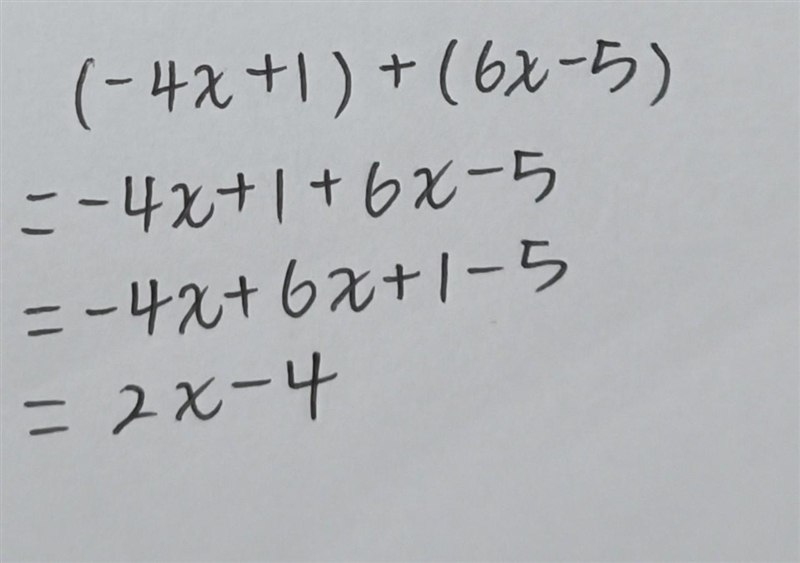 (-4x+1)+(6x-5)
=-4x+1+6x-5
=-4x+6x+1-5
=2x-4